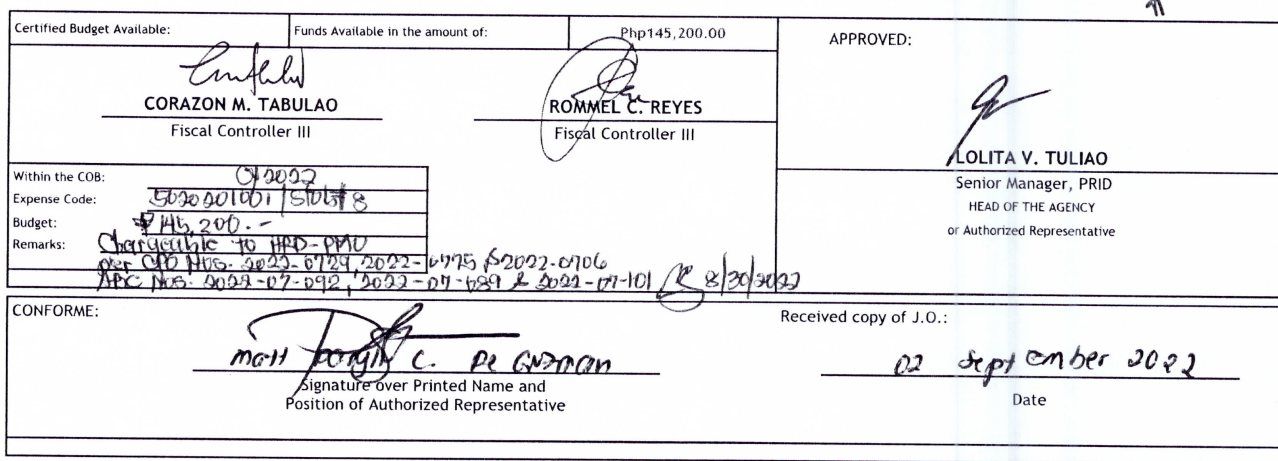 Certified Budget Available: Funds Available in the amount of: Php145,200.00
APPROVED:
CORAZON M. TABULAO
Fiscal Controller III
ROMMEL C. REYES
Fiscal Controller III
LOLITA V. TULIAO
Senior Manager, PRID
HEAD OF THE AGENCY
or Authorized Representative
Within the COB: 2022
Expense Code:
Budget: ₱145,200.-
Remarks: Chargeable to HRD-PMO
per CPO Nos. 2022-0729, 2022-0775 & 2022-0706
APC Nos. 2022-07-092, 2022-07-089 & 2022-07-101 8/30/2022
CONFORME:
Matt C. De Guzman
Signature over Printed Name and
Position of Authorized Representative
Received copy of J.O.:
02 September 2022
Date